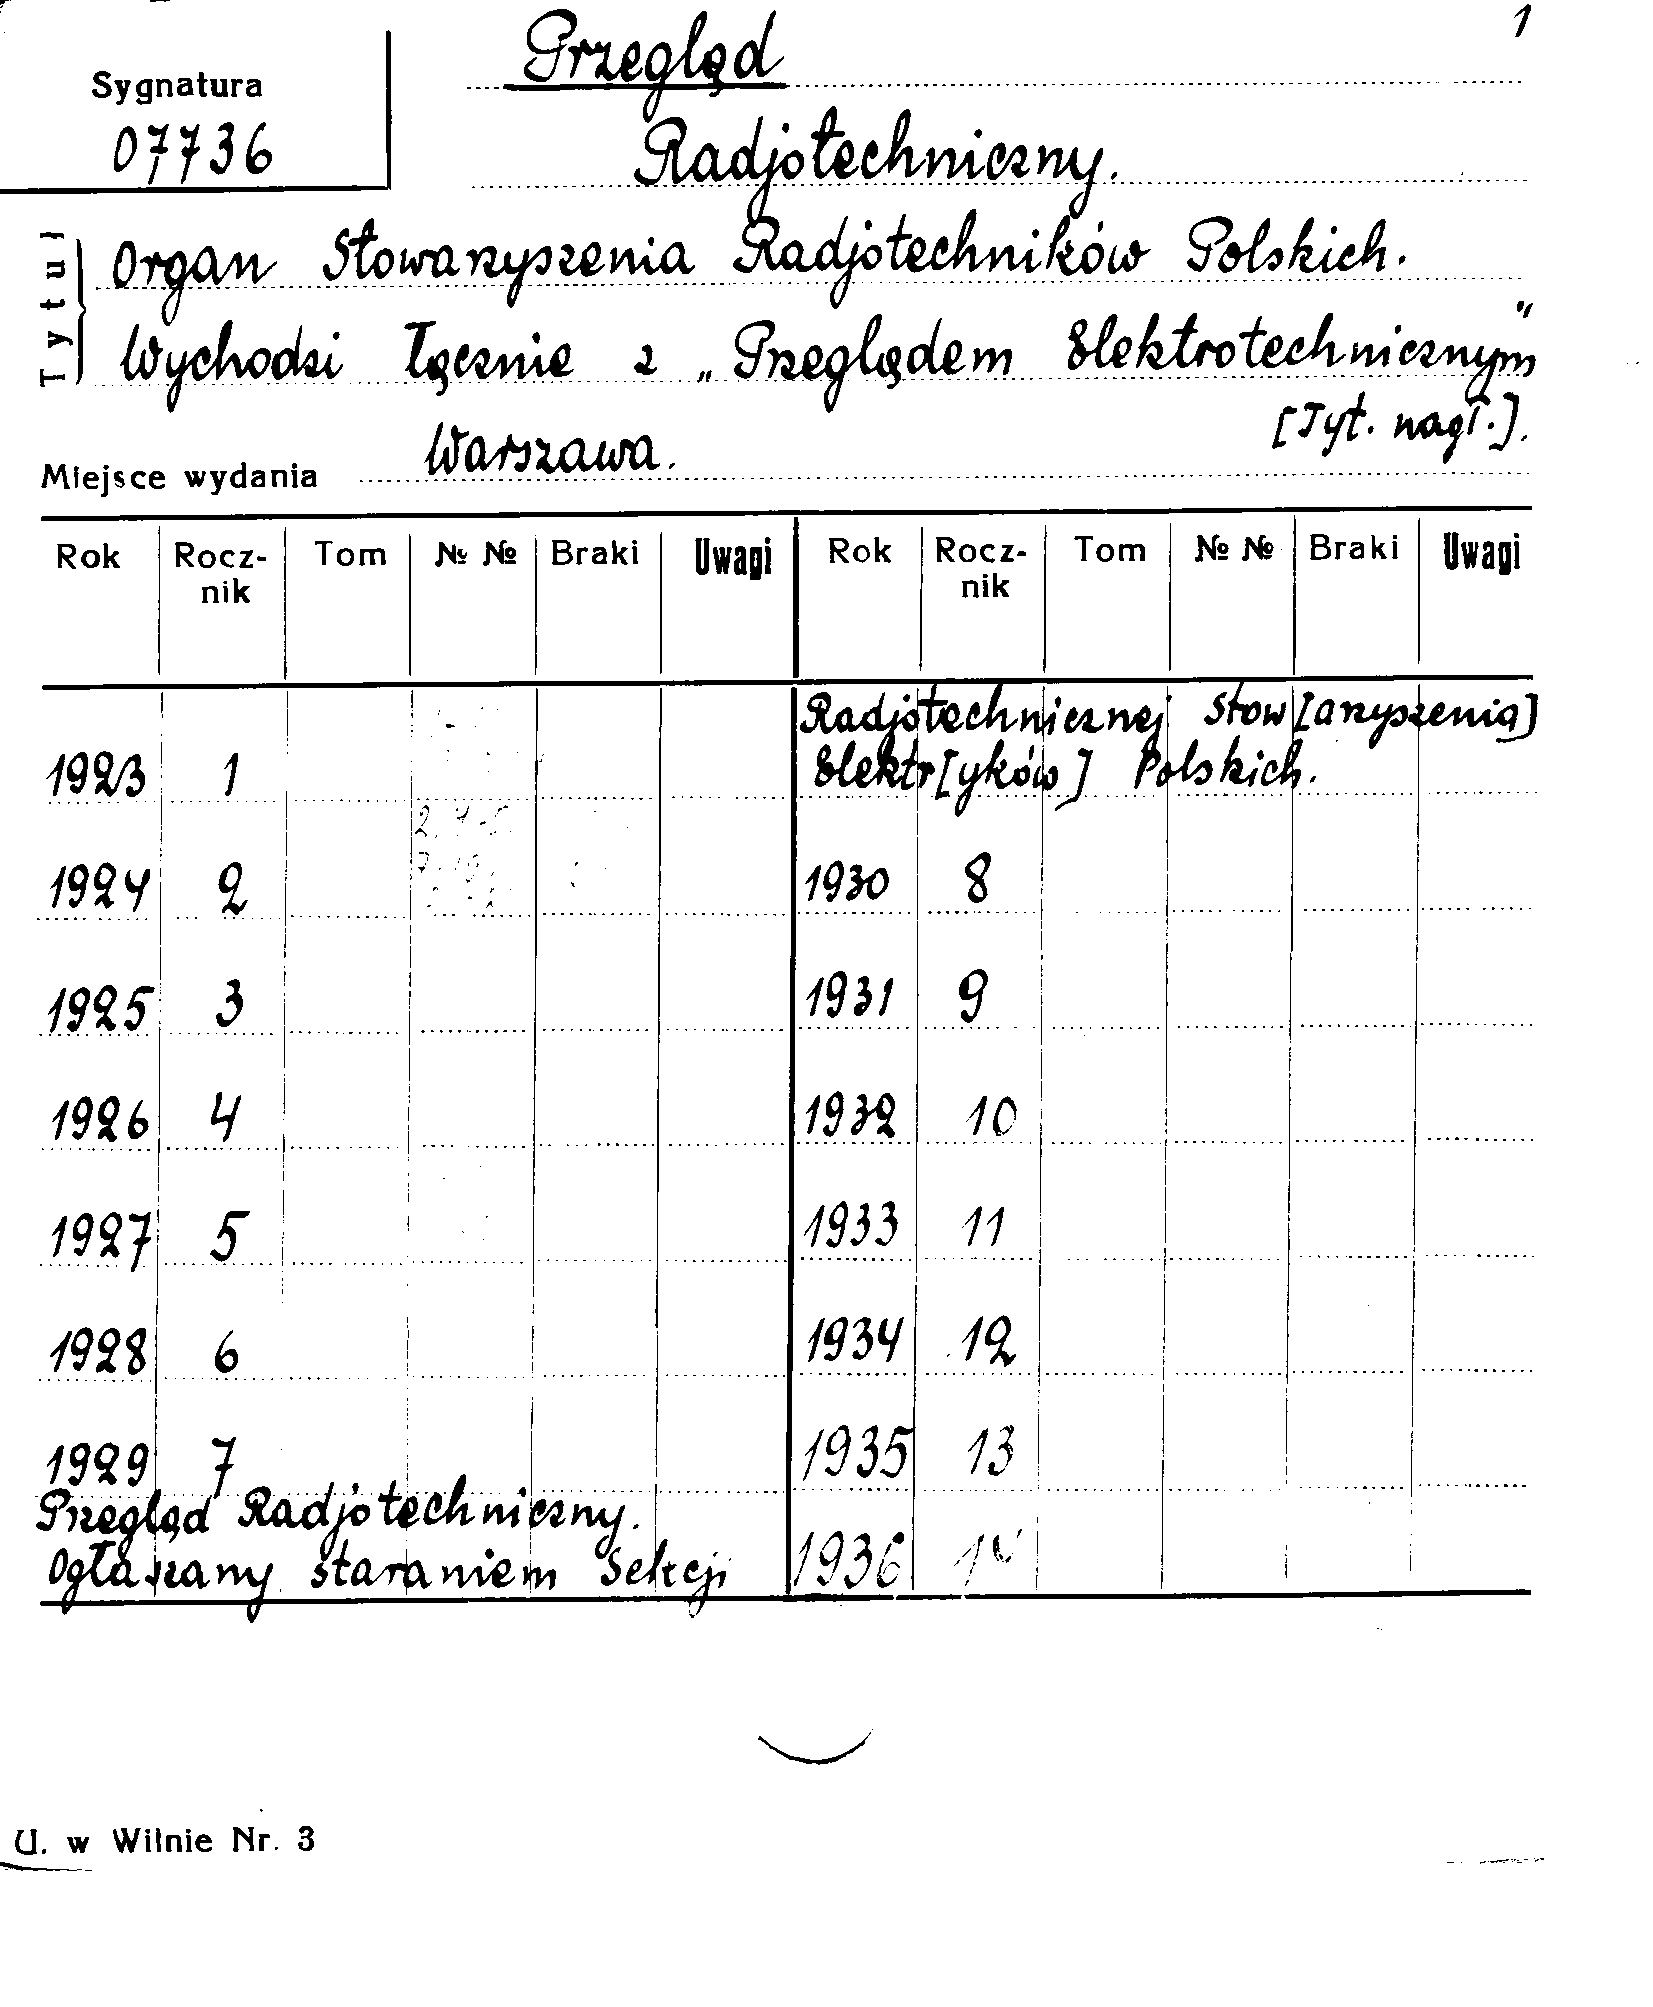 1
Sygnatura
07736
Przegląd
Radjotechniczny.
Tytuł
Organ Stowarzyszenia Radjotechników Polskich.
Wychodzi łącznie z „Przeglądem Elektrotechnicznym"
[Tyt. nagł.].
Miejsce wydania Warszawa.
Rok Rocz- Tom № № Braki Uwagi Rok Rocz- Tom № № Braki Uwagi
nik nik
1923 1
1924 2
1925 3
1926 4
1927 5
1928 6
1929 7
Przegląd Radjotechniczny.
Ogłaszany staraniem Sekcji
Radjotechnicznej Stow[arzyszenia]
Elektr[yków] Polskich.
1930 8
1931 9
1932 10
1933 11
1934 12
1935 13
1936 14
U. w Wilnie Nr. 3